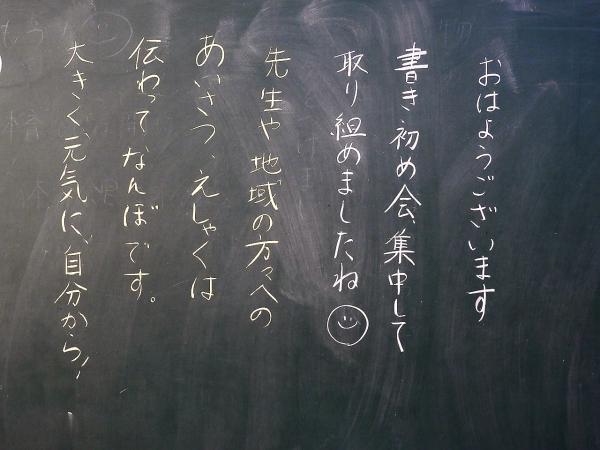 おはようございます
書き初め会、集中して
取り組めましたね
先生や地域の方々への
あいさつ、えしゃくは
伝わってなんぼです。
大きく、元気に、自分から!